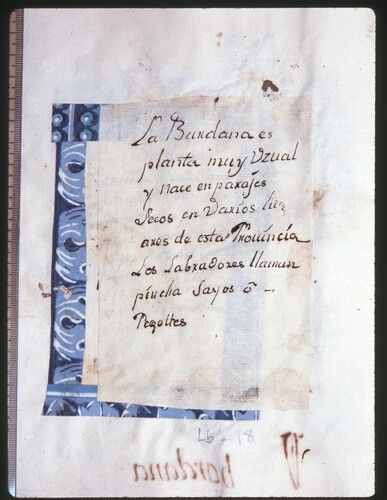 La Bardana es
planta muy Vzual
y nace en parajes
Secos en Varios lug
ares de esta Provincia
Los Labradores llaman
pincha Sayos ô –
Pegottes
Lb - 18
bardana